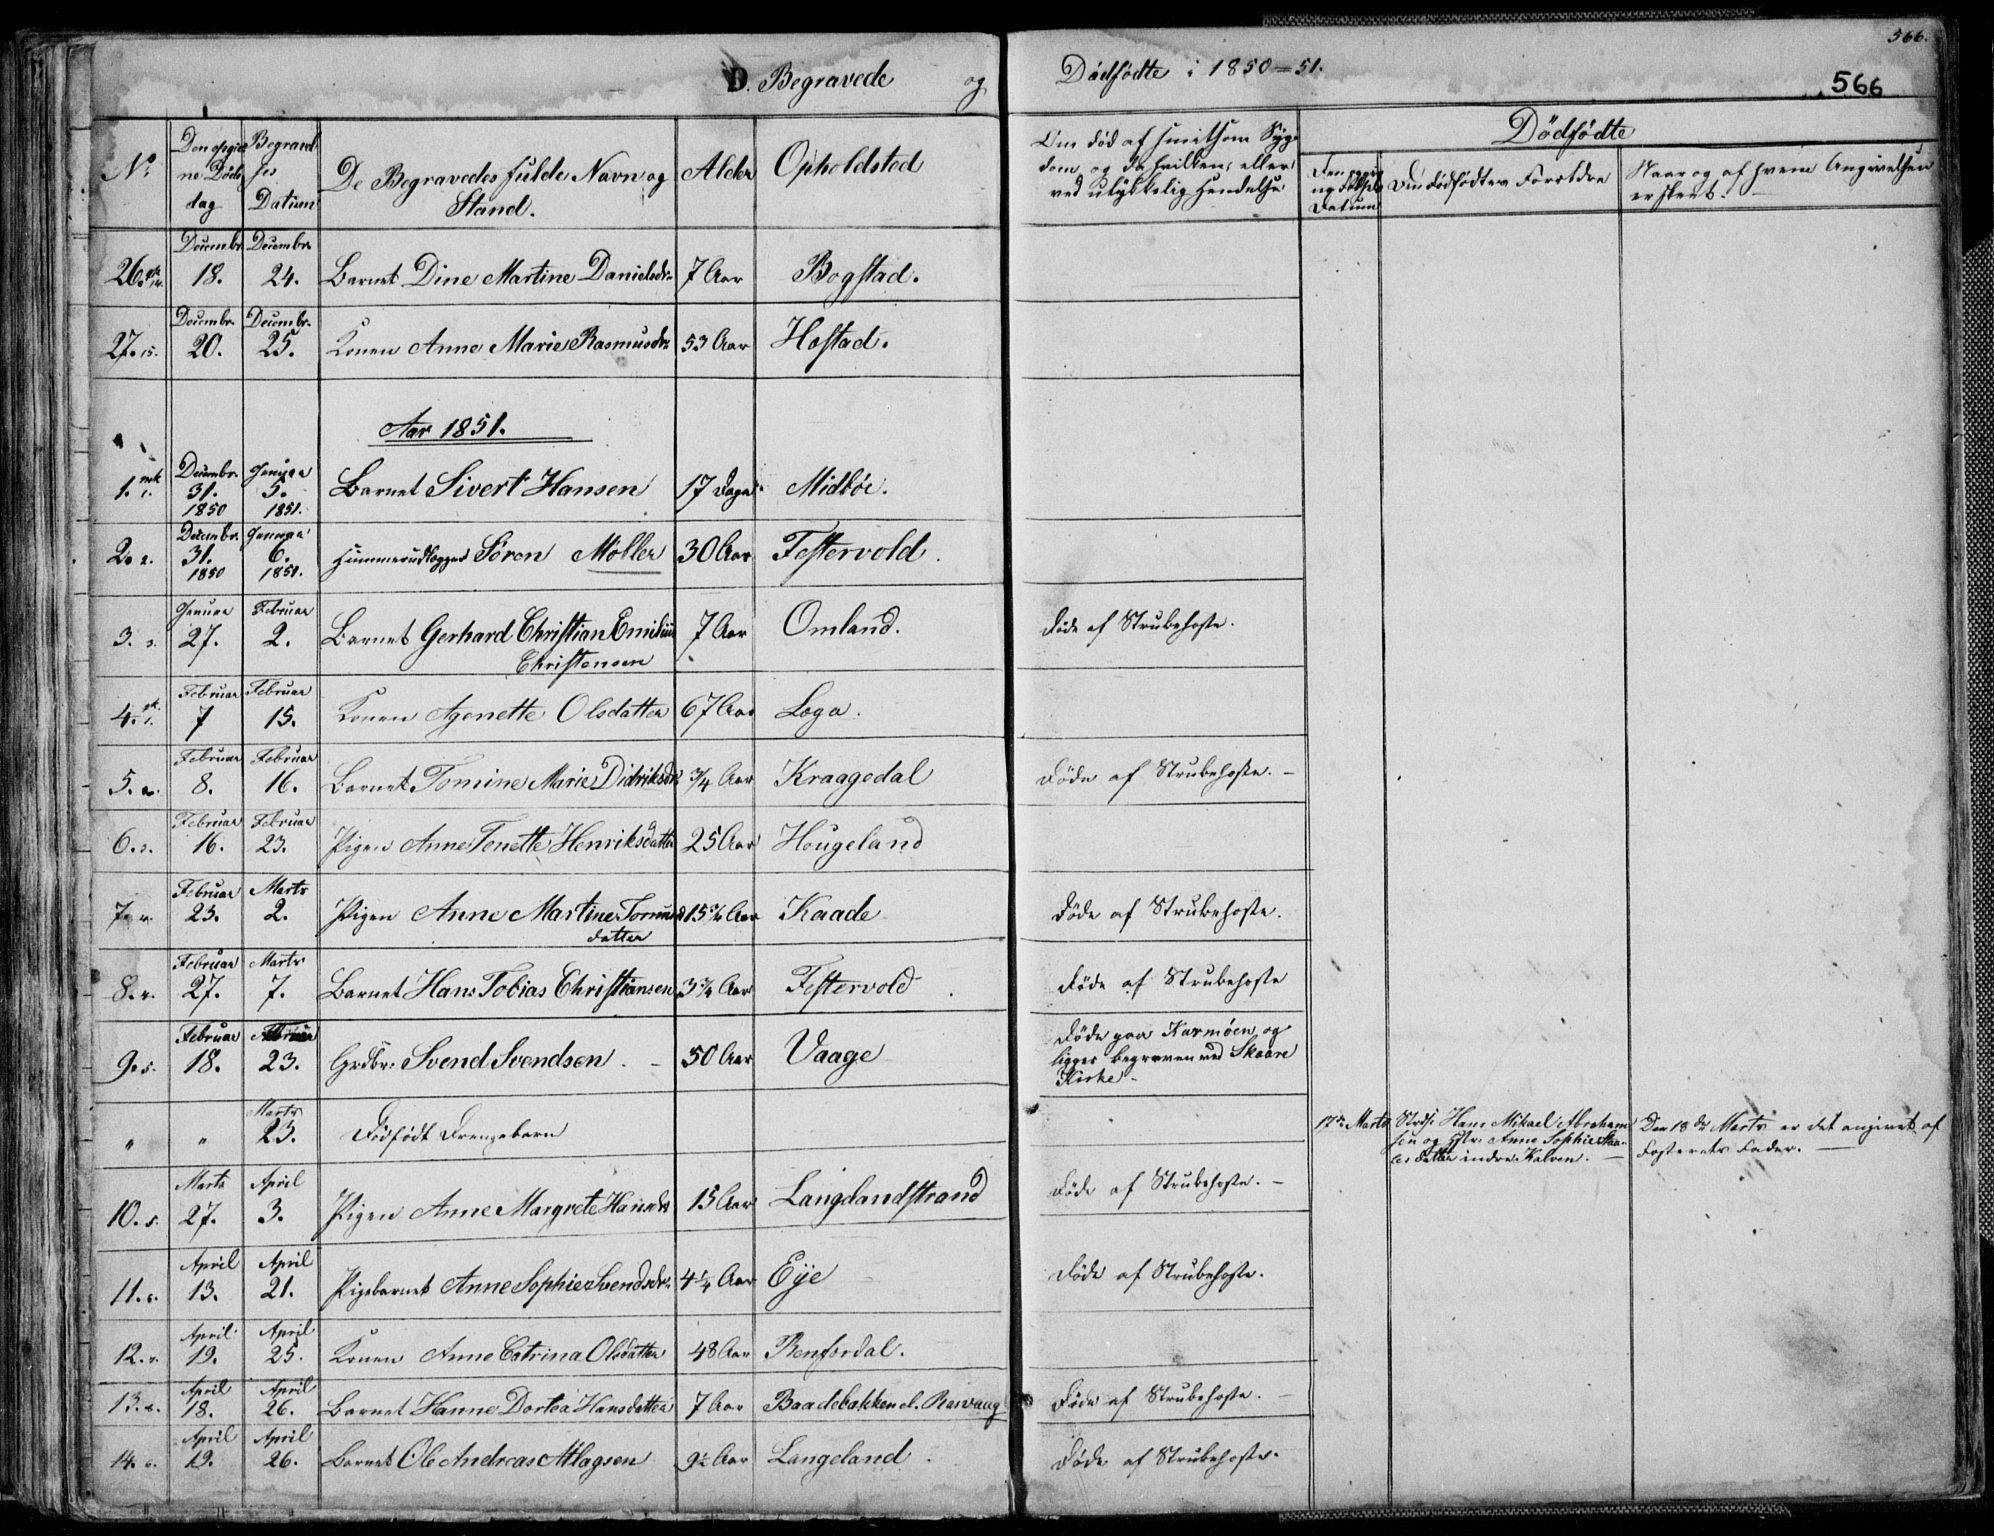 566.
D. Begravede og Dödfödte i 1850-51.
566
No.
Den opgivne Døds dag
Begravelses Datum
De Begravedes fulde Navn og Stand.
Alder
Opholdsted
Om död af smitsom Sygdom og da hvilken, eller ved ulykkelig Hendelse
Dödfödte
Datum
Den dödfödtes Foreldre
Naar og af hvem Angivelsen er skeet.
26. Decembr. 18. Decembr. 24. Barnet Dine Martine Danielsdr. 7 Aar Bogstad.
27. 15. Decembr. 20. Decembr. 25. Konen Anne Marie Rasmusdr. 53 Aar Hostad.
Aar 1851.
1. mk. 1. Decembr. 31. 1850 Januar 5. 1851. Barnet Sivert Hansen 17 Dage Midböe.
2. 2. Decembr. 31. 1850 Januar 6. 1851. Hummerudlegger Sören Möller 30 Aar Festervold.
3. 3. Januar 27. Februar 2. Barnet Gerhard Christian Emilius Christensen 7 Aar Omland. Döde af Strubehoste.
4. qk. 1. Februar 7 Februar 15. Konen Agenette Olsdatter 67 Aar Loga.
5. 2. Februar 8. Februar 16. Barnet Tomine Marie Didriksdr. 3/4 Aar Kraagedal Döde af Strubehoste. -
6. 3. Februar 16. Februar 23. Pigen Anne Tenette Henriksdatter 25 Aar Hougeland
7. Februar 23. Marts 2. Pigen Anne Martine Tormods datter 15 3/4 Aar Kaade Döde af Strubehoste.
8. 4. Februar 27. Marts 7. Barnet Hans Tobias Christiansen 3 3/4 Aar Festervold Döde af Strubehoste
9. 5. Februar 18. Februar 23. Grdbr. Svend Svendsen. - 50 Aar Vaage Döde paa Karmöen, og
ligger begraven ved Skaare
Kirke -
" " Marts 23. Dödfödt Drengebarn 17de Marts Strds. Hans Mikael Abraham Den 18de Marts er det angivet af
sen og Hstr. Anne Sophie
datter indre Kalven. - Fosterets Fader. -
10. 5. Marts 27. April 3. Pigen Anne Margrete Hansdr. 15 Aar Langelandstrand Döde af Strubehoste. -
11. 6. April 13. April 21. Pigebarnet Anne Sophie Svendsdr. 4 1/4 Aar Eije Döde af Strubehoste.
12. April 19. April 25. Konen Anne Catrina Olsdatter 48 Aar Renfordal.
13. April 18. April 26. Barnet Hanne Dortea Hansdatter 7 Aar Baadebakken el. Rasvaag Döde af Strubehoste. -
14. April 19. April 26. Barnet Ole Andreas Atlagsen 9 1/2 Aar Langeland. Döde af Strubehoste.